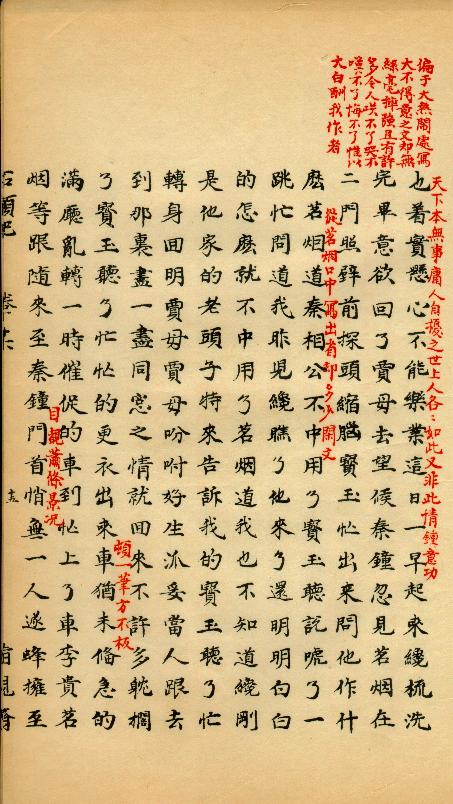 偏于大熱鬧處寫
大不得意之文却無
絲毫摔强且有許
多令人咲不了哭不
嘆不了悔不了惟以
大白酬我作者
天下本無事庸人自擾之世上人各〻如此又非此情鍾意功
也着實懸心不能樂業這日一早起來纔梳洗
完畢意欲回了賈母去望候秦鍾忽見茗烟在
二門照辟前探頭縮腦寳玉忙出來問他作什
從茗烟口中寫出省却多少閑文
麽茗烟道秦相公不中用了寳玉聽說唬了一
跳忙問道我昨見纔瞧了他來了還明明白白
的怎麽就不中用了茗烟道我也不知道纔剛
是他家的老頭子特來告訴我的寳玉聽了忙
轉身回明賈母賈母吩咐好生派妥當人跟去
到那裏盡一盡同窓之情就回來不許多躭擱
頓一筆方不板
了寳玉聽了忙忙的更衣出來車猶未俻急的
滿廳亂轉一時催促的車到忙上了車李貴茗
目覩蕭條景况
烟等跟隨來至秦鍾門首悄無一人遂蜂擁至
石頭記 卷十六 十五 脂硯齋